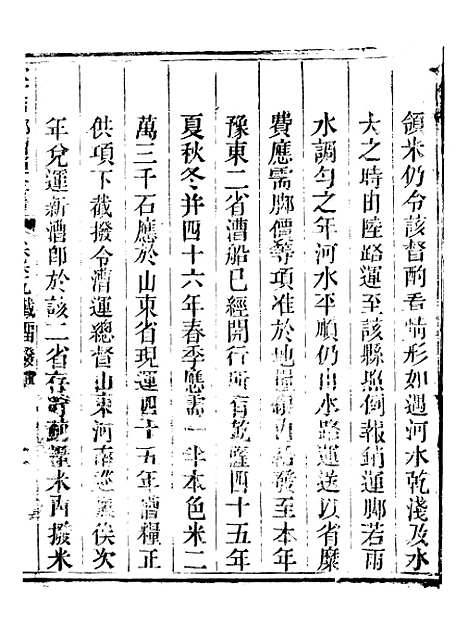 領米仍令該督酌看情形如遇河水乾淺及水
大之時由陸路運至該縣照例報銷運脚若雨
水調勻之年河水平順仍由水路運送以省糜
費應需脚價等項准於地糧銀內給發至本年
豫東二省漕船已經開行所有乾隆四十五年
夏秋冬并四十六年春季應需一半本色米二
萬三千石應於山東省現運四十五年漕糧正
供項下截撥令漕運總督山東河南巡撫俟次
年兌運新漕卽於該二省存貯薊糧米內撥米
截留撥